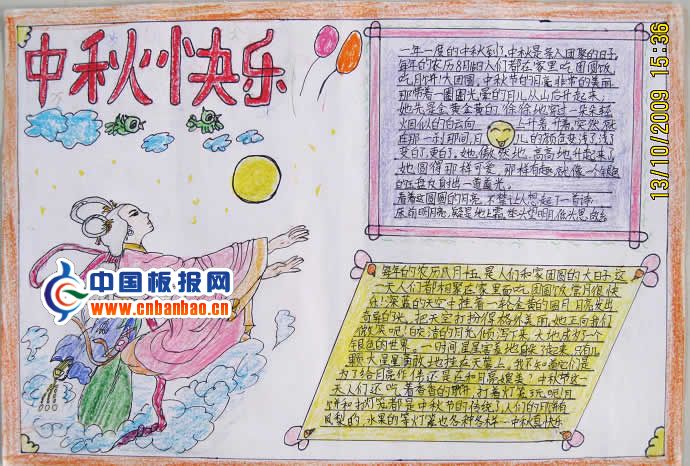 中秋快乐
一年一度的中秋到了,中秋是家人团聚的日子,
每年的农历8月15日人们都在家里吃团圆饭
吃月饼大团圆。中秋节的月亮非常的美丽
那带着一圈圈光晕的月儿从山后升起来,
她先是金黄金黄的,徐徐地穿过一朵朵轻
烟似的白云向 上升着,升着,突然就
在那一刹那间,月 儿的颜色变浅了,浅了
变白了,更白了。她傲然地,高高地升起来了,
她圆得那样可爱,那样有趣,就像一个银色
的 盘反射出一道蓝光。
看着这圆圆的月亮,不禁让人想起了一首诗:
床前明月亮,疑是地上霜,举头望明月,低头思故乡
每年的农历八月十五,是人们和家团圆的大日子,这
一天人们都相聚在家里面吃团圆饭,赏月很快
在深蓝的天空中挂着一轮金黄的圆月,月亮发出
白光,把天空打扮得格外美丽,她正向我们
微笑呢!皎洁的月光倾泻下来,大地成为了个
银色的世界。一时间星星害羞地躲了起来,只有几
颗大星星勇敢地挂在天幕上,我不知道它们是
为了给月亮作伴还是在和月亮媲美?中秋节这一
天人们还吃着香香的月饼,打着灯笼玩呢!月
饼和打灯笼都是中秋节的传统了,人们的月饼有
凤梨的,水果的等,灯笼也各种各样……中秋真快乐
中国板报网
www.cnbanbao.cn
13/10/2009 15:36